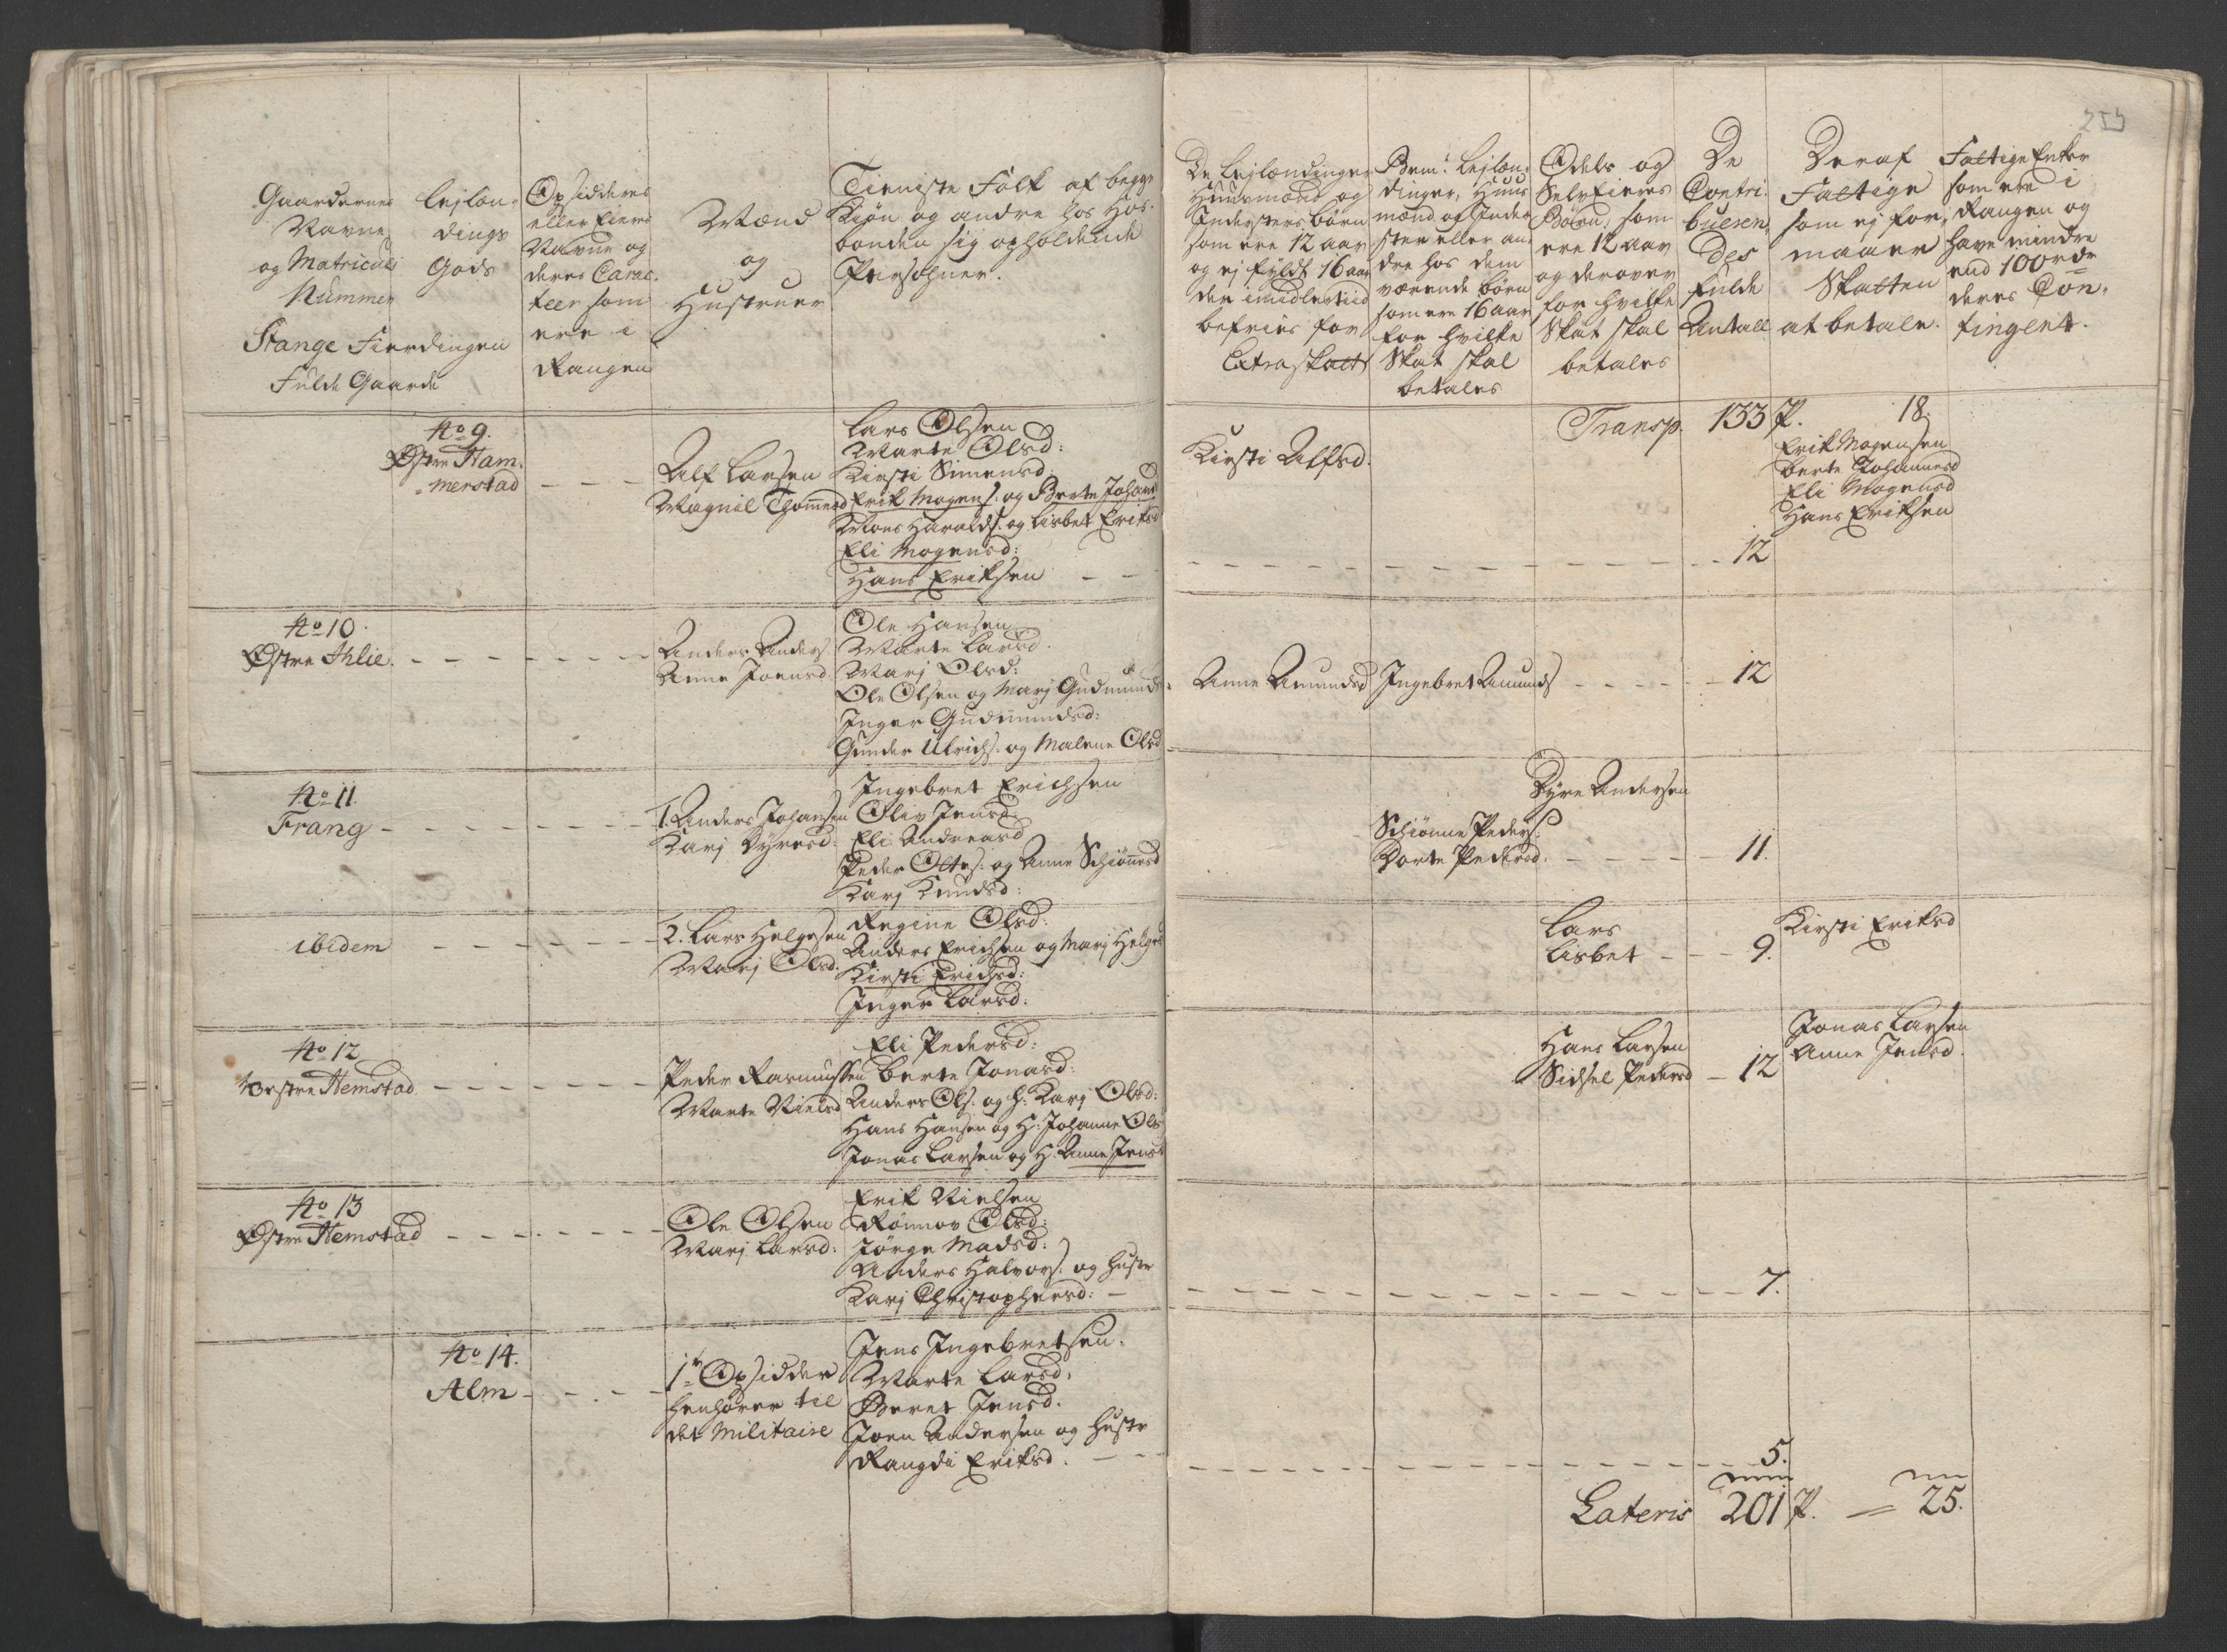 259
Gaardernes
Navne
og Matriculs
Nummer
Stange Fierdingen
Fulde Gaarde
Lejlæn-
dings
Gods
Opsidderes
eller Eieres
Navne og
deres Carac-
teer som
ere i
Rangen
Mænd
og
Hustruer
Tieniste Folk af begge
Kiøn og andre hos Hos-
bonden sig opholdende
Persohner.
De Lejlændinger
Huusmænds og
Indersters børn
som ere 12 aar
og ej fyldt 16 aar
der imidlertiid
befries for
Extraskatt
Bem.te Lejlæn-
dinger, Huus
mænd og Inder
ster eller an-
dre hos dem
værende børn
som ere 16 aar
for hvilke
Skat skal
betales
Odels og
SelvEieres
Børn, som
ere 12 aar
og derover
for hvilke
Skat skal
betales
De
Contri-
bueren-
des
fulde
Antall
Deraf
Fattige
som ej for-
maaer
Skatten
at betale.
Fattige Enker
som ere i
Rangen og
have mindre
end 100 rdr
deres Con-
tingent.
Transp. 133 P. 18.
No 9.
Østre Ham-
merstad
Alf Larsen
Magnil Thommesd
Lars Olsen
Marte Olsd:
Kirsti Simensd.
Erik Mogens: og Berte Johansd
Moens Haralds: og Lisbet Eriksd
Eli Mogensd:
Hans Eriksen
Kirsti Alfsd.
12
Erik Mogensen
Berte Johannesd
Eli Mogensd
Hans Eriksen
No 10.
Østre Ihlie.
Anders Anders
Anne Joensd
Ole Hansen
Marte Larsd.
Marj Olsd:
Ole Olsen og Marj Gudmunds
Inger Gudmundsd:
Gunder Ulrichs: og Malene Olsd
Anne Amundsd
Ingebret Amunds
12
No 11.
Frang
1. Anders Johansen
Karj Dyresd:
Ingebret Erichsen
Oliv Jensd:
Eli Andreasd
Peder Oltes: og Anne Schiønnesd
Karj Knudsd:
Schiønne Peders.
Dorte Pedersd.
Dyre Andersen
11.
ibidem
2. Lars Helgesen
Marj Olsd.
Regine Olsd:
Anders Erichsen og Marj Helges
Kirsti Erichsd:
Inger Larsd:
Lars
Lisbet
9.
Kirsti Eriksd
No 12
Vestre Hemstad
Peder Rasmussen
Marte Nielsd
Eli Pedersd:
Berte Jonasd:
Anders Ols: og H: Karj Olsd:
Hans Hansen og H: Johanne Ols
Jonas Larsen og H: Anne Jensd
Hans Larsen
Sidsel Pedersd
12
Jonas Larsen
Anne Jensd.
No 13
Østre Hemstad
Ole Olsen
Marj Larsd:
Erik Nielsen
Rønnov Olsd:
Jørge Madsd:
Anders Halvors: og Hustr
Karj Christophersd:
7.
No 14.
Alm
1te Opsidder
henhører til
det Militaire
Jens Ingebretsen.
Marte Larsd.
Beret Jensd.
Joen Andersen og Hustr
Rangdi Eriksd.
5.
Lateris 201 P. = 25.